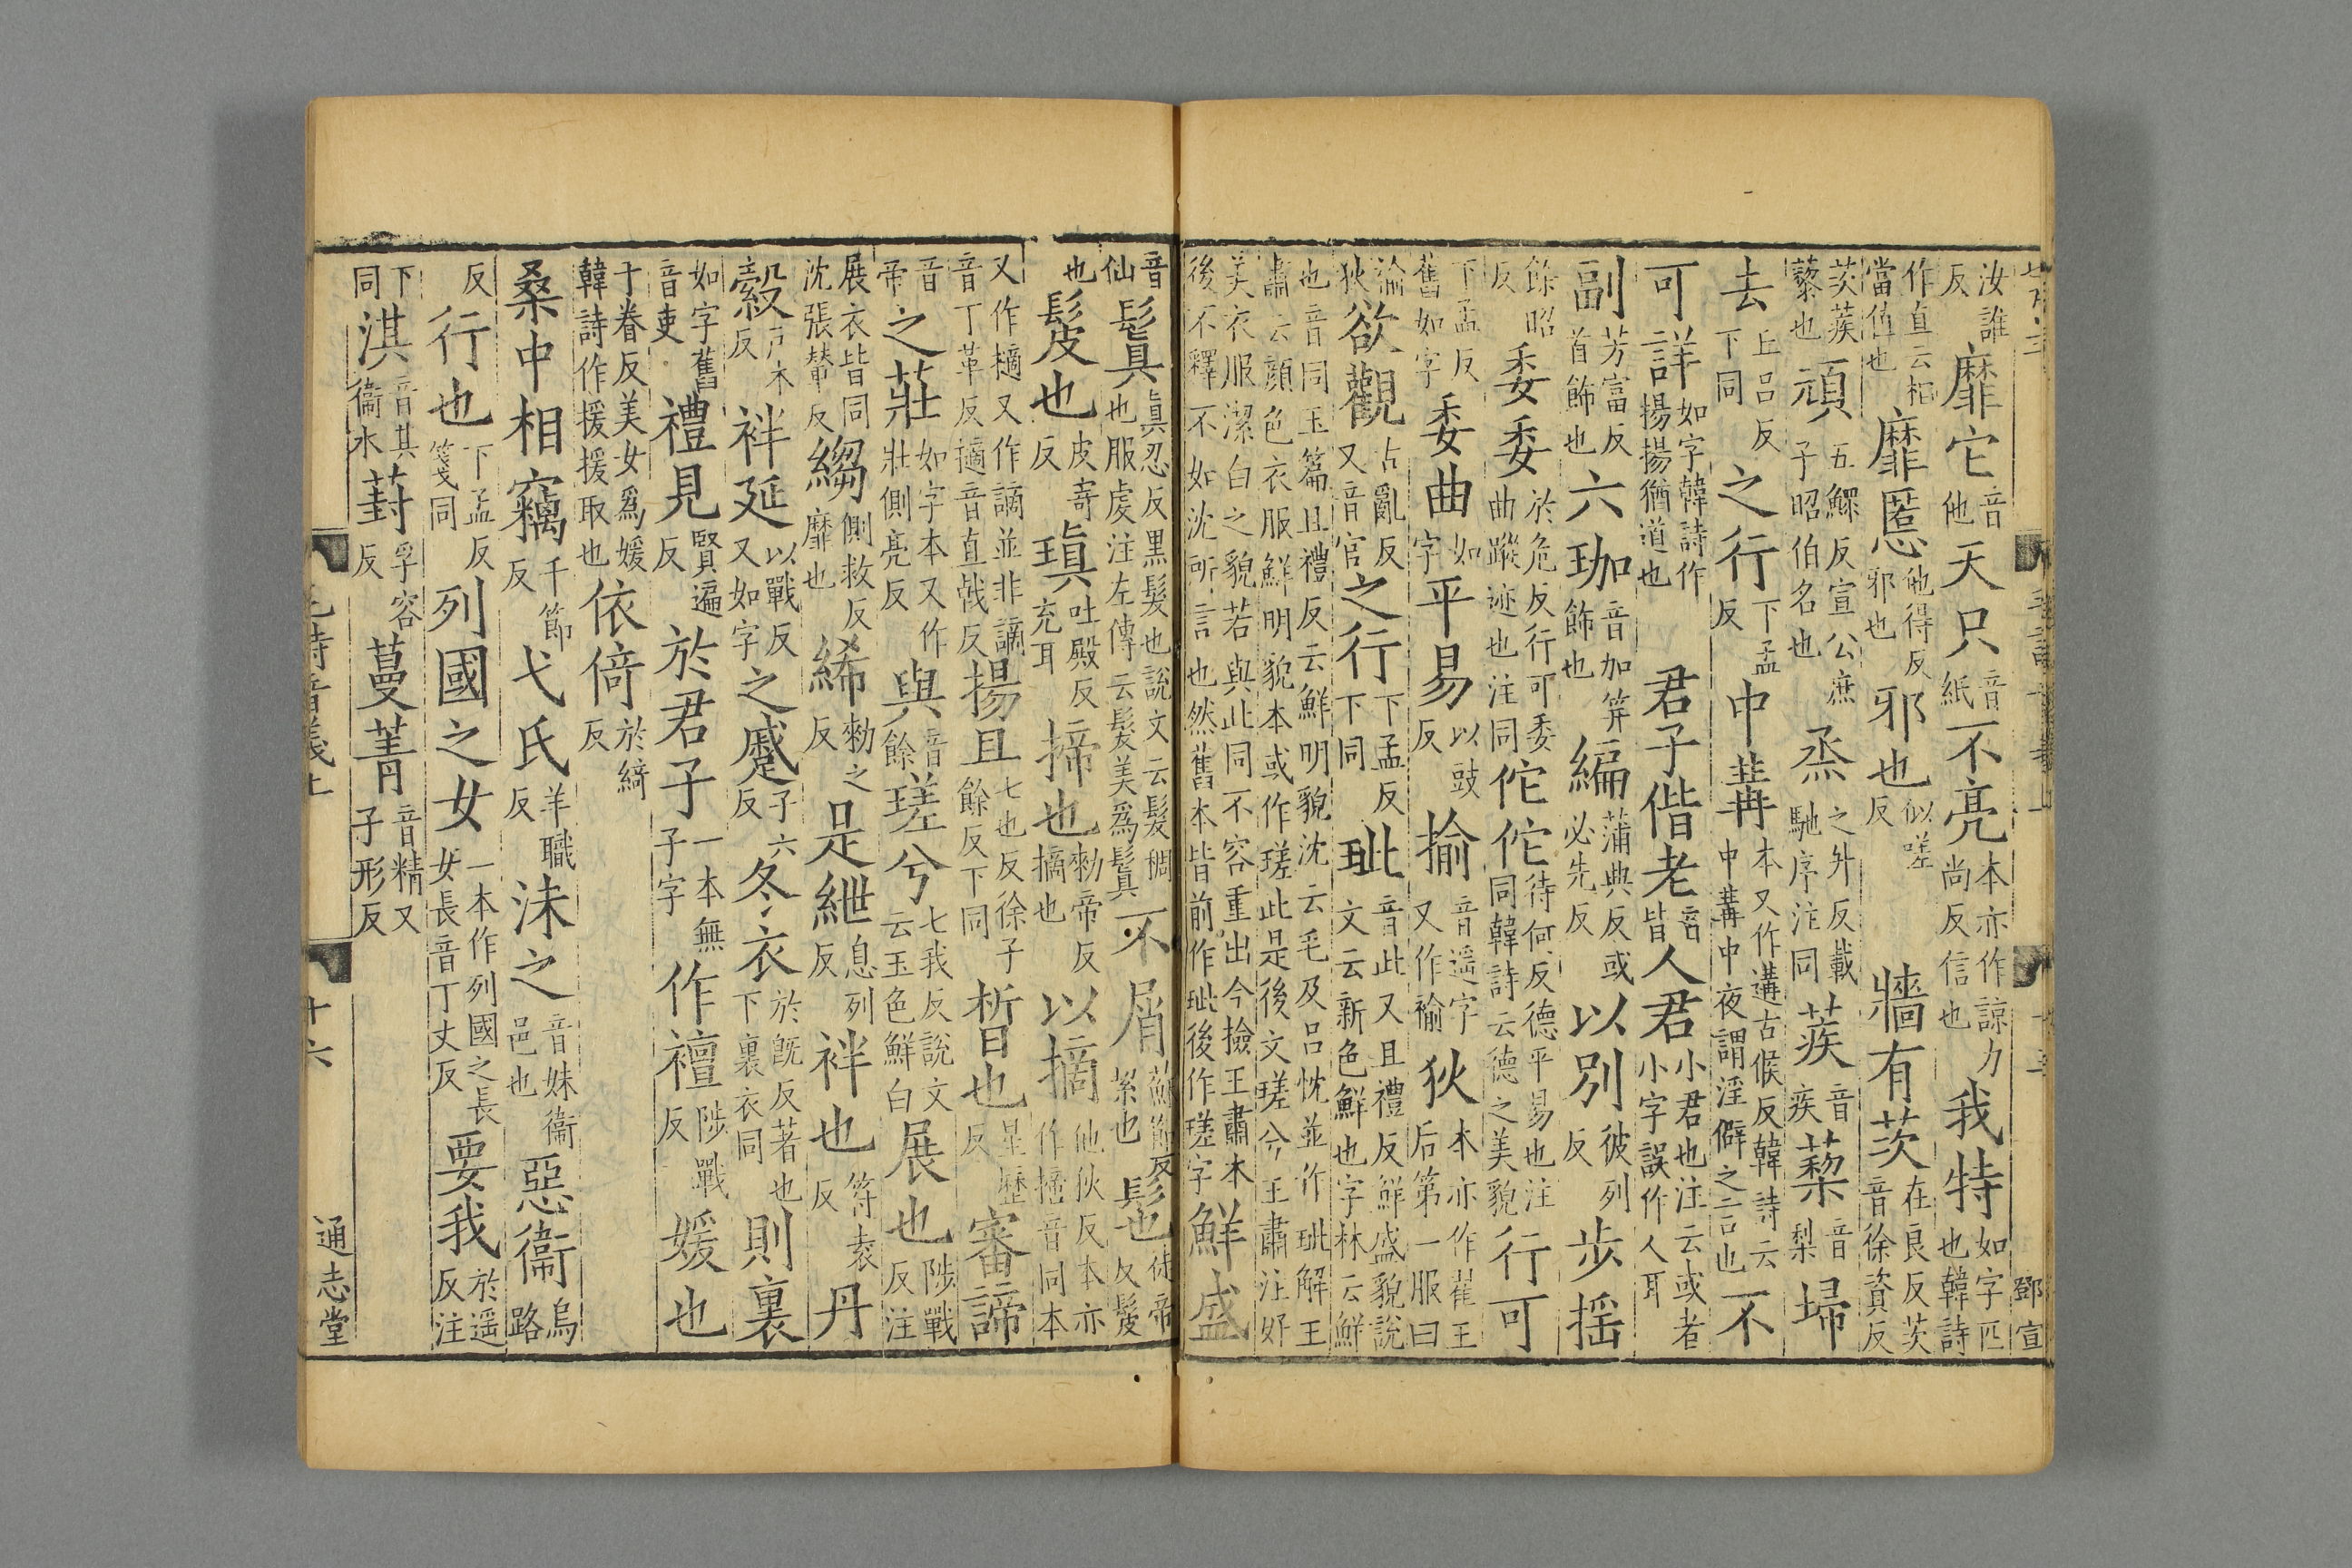 汝誰反靡它音他天只音紙不亮本亦作諒力尚反信也我特如字匹也韓詩
作直云相當值也靡慝他得反邪也邪也似嗟反牆有茨在良反茨音徐資反
茨蒺藜也頑五鰥反宣公庶子昭伯名也烝之升反載馳序注同蒺音疾蔾音梨埽
去丘呂反下同之行下孟反中冓本又作遘古候反韓詩云中冓中夜謂淫僻之言也不
可詳如字韓詩作揚揚猶道也君子偕老音皆人君小君也注云或者小字誤作人耳
副芳富反首飾也六珈音加笄飾也編蒲典反或必先反以別彼列反步揺
餘昭反委委於危反行可委曲蹤迹也注同佗佗待何反德平易也注同韓詩云德之美貌行可
下孟反舊如字委曲如字平易以豉反揄音遥字又作褕狄本亦作翟王后第一服曰
褕狄欲觀古亂反又音官之行下孟反下同玼音此又且禮反鮮盛貌說文云新色鮮也字林云鮮
也音同玉篇且禮反云鮮明貌沈云毛及呂忱並作玼解王肅云顏色衣服鮮明貌本或作瑳此是後文瑳兮王肅注好
美衣服潔白之貌若與此同不容重出今撿王肅本後不釋不如沈所言也然舊本皆前作玼後作瑳字鮮盛
音仙鬒真忍反黑髮也說文云髮稠也服虔注左傳云髮美爲鬒不屑蘇節反絜也髢也徒帝反髲
也髲也皮寄反瑱吐殿反充耳揥也勑帝反摘也以摘他狄反本亦作擿音同本
又作樀又作謫並非謫音丁革反擿音直戟反揚且七也反徐子餘反下同晳也星歷反審諦
音帝之莊如字本又作壯側亮反與音餘瑳兮七我反說文云玉色鮮白展也陟戰反注
展衣皆同沈張輦反縐側救反靡也絺勑之反是紲息列反袢也符袁反丹
縠戶木反袢延以戰反又如字之蹙子六反冬衣於旣反著也下裏衣同則裏
如字舊音吏禮見賢遍反於君子一本無子字作襢陟戰反媛也
于眷反美女爲媛韓詩作援援取也依倚於綺反
桑中相竊千節反弋氏羊職反沬之音妹衞邑也惡衞烏路
反行也下孟反箋同列國之女一本作列國之長女長音丁丈反要我於遥反注
下同淇音其衞水葑孚容反蔓菁音精又子形反
毛詩音義上
十六
通志堂
鄧宣